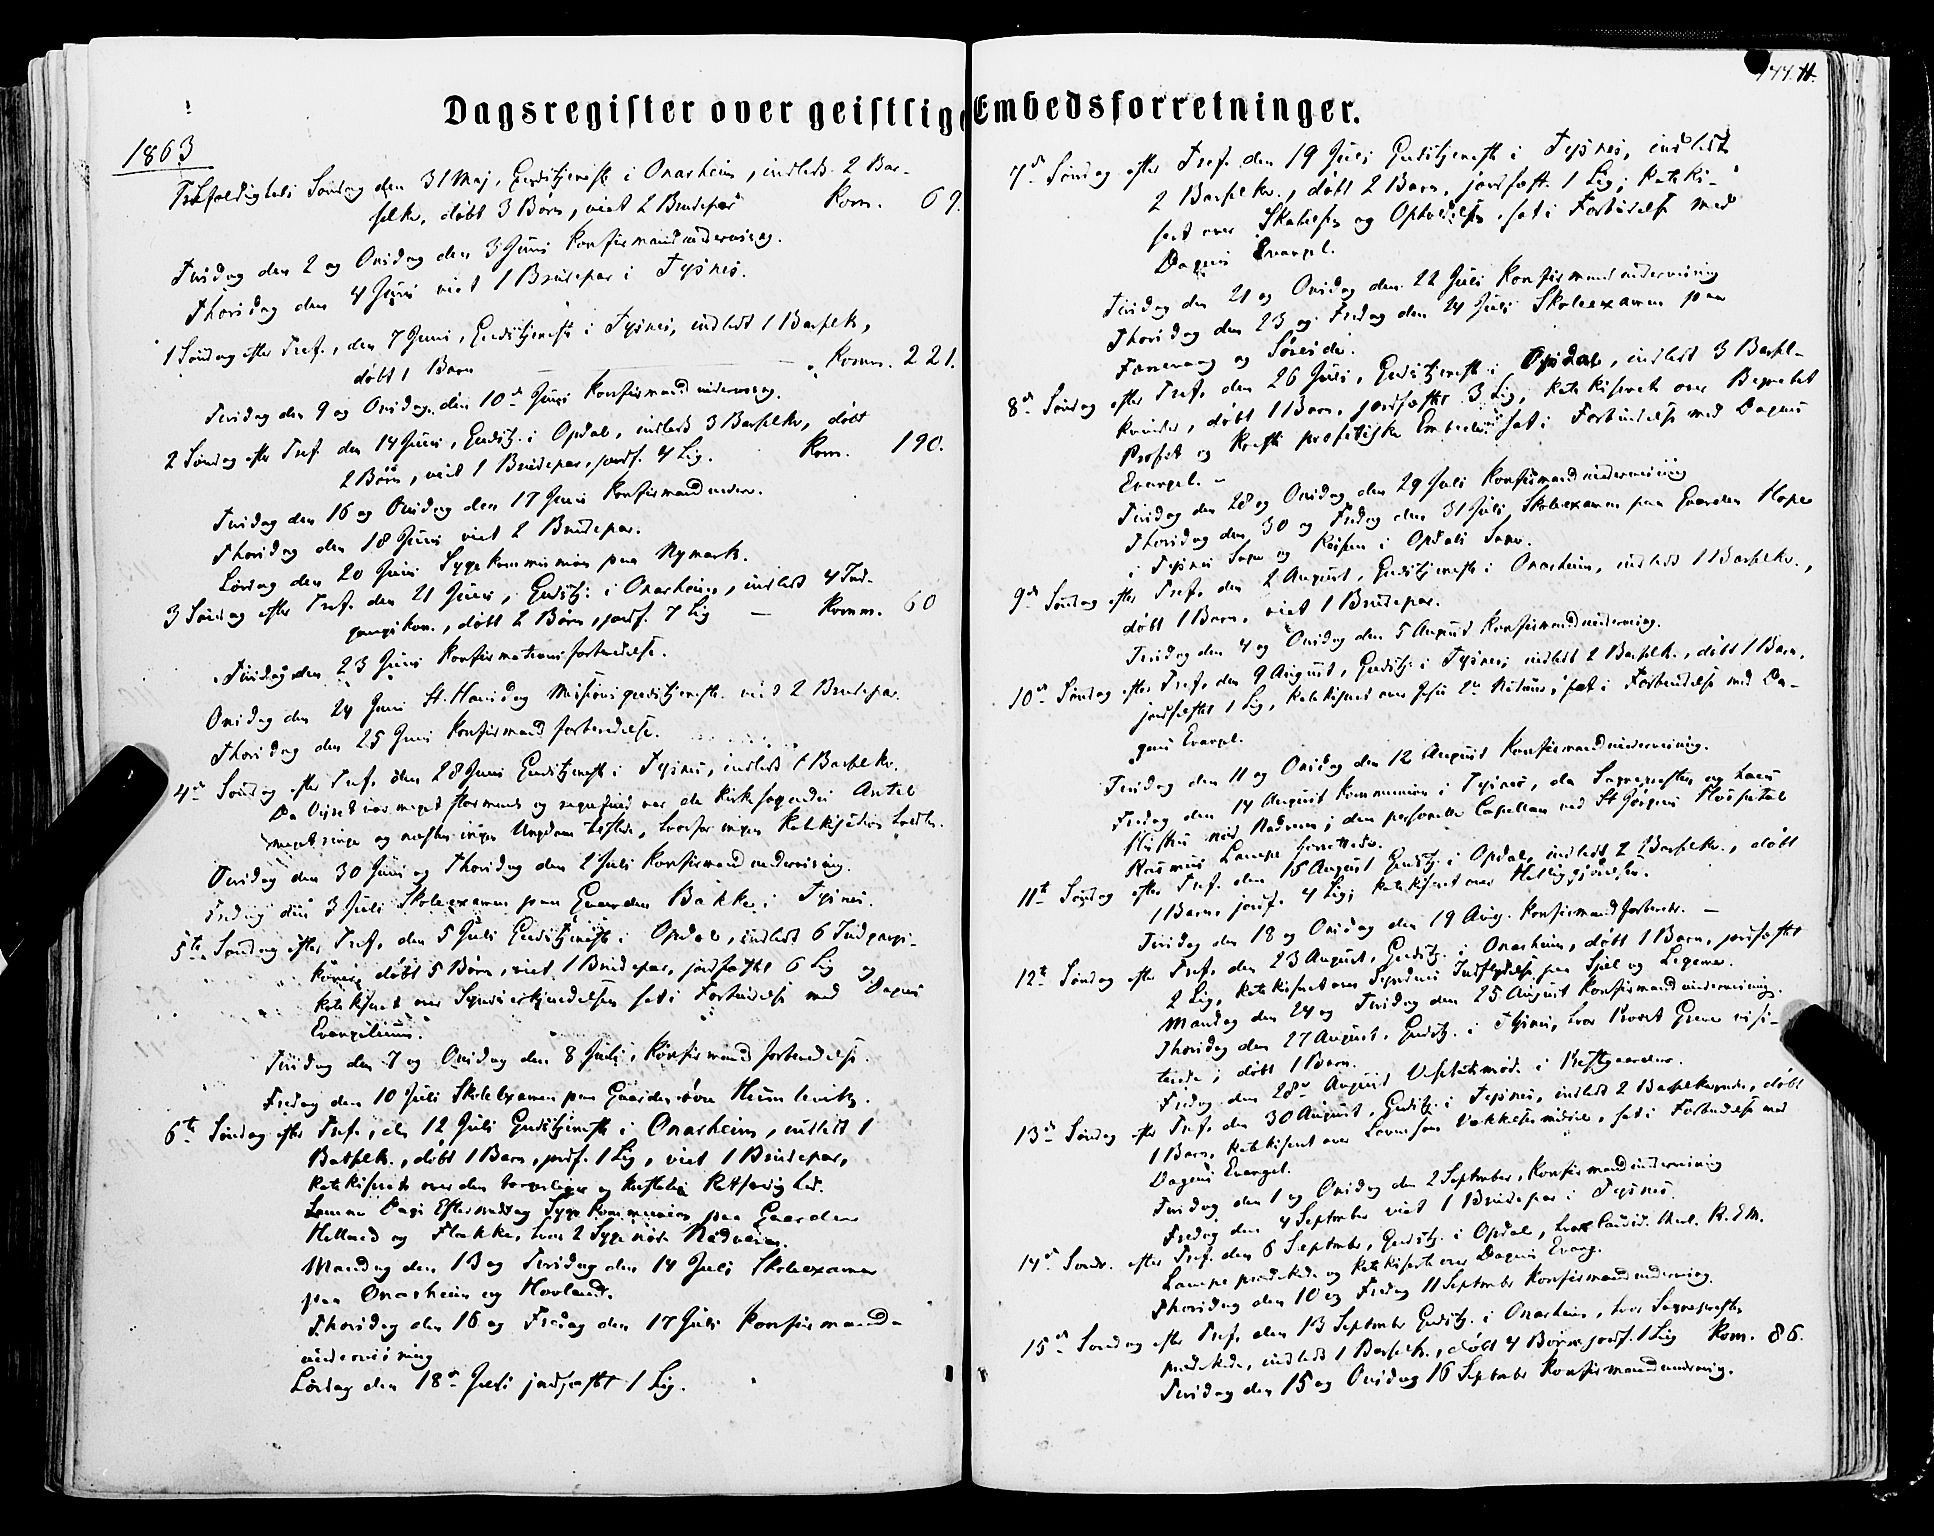 Dagsregister over geistlige Embedsforretninger.
144. 11.
1863
Trefoldigheds Søndag den 31 Maj, Gudstjeneste i Onarheim, indledt 2 Bar-
selkv, døbt 3 Børn, viet 2 Brudepar Kom. 69.
Tirsdag den 2 og Onsdag den 3 Juni Konfirmandundervisng.
Thorsdag den 4 Juni viet 1 Brudepar i Tysnes.
1 Søndag efter Tref., den 7 Juni, Gudstjeneste i Tysnes, indledt 1 Barselk,
døbt 1 Barn — — Komm. 221.
Tirsdag den 9 og Onsdag den 10de Juni Konfirmandundervisng.
2 Søndag efter Tref. den 14 Juni, Gudstj. i Opdal, indledt 3 Barselkv, døbt
2 Børn, viet 1 Brudepar, jordf. 4 Lig. Kom. 190.
Tirsdag den 16 og Onsdag den 17 Juni Konfirmandunderv.
Thorsdag den 18 Juni viet 2 Brudepar.
Lørdag den 20 Juni Sygekommunion paa Nymark.
3 Søndag efter Tref. den 21 Juni, Gudstj. i Onarheim, indledt 4 Ind-
gangskon., døbt 2 Børn, jordf. 7 Lig — Komm. 60
Tirsdag den 23 Juni Konfirmationsforberedelse.
Onsdag den 24 Juni St. Hansdag Missionsgudstjeneste. viet 2 Brudepar.
Thorsdag den 25 Juni Konfirmandforberedelse.
4de Søndag efter Tref. den 28 Juni Gudstjeneste i Tysnes, indledt 1 Barselkv.
Da Veiret var meget stormende og regnfuld var de Kirkesøgendes Antal
meget ringe og næsten ingen Ungdom tilstede, hvorfor ingen Katekisation holdtes.
Tirsdag den 30 Juni og Thorsdag den 2 Juli Konfirmandundervisning.
Fredag den 3 Juli Skoleexamen paa Gaarden Bakke i Tysnes.
5te Søndag efter Tref. den 5 Juli Gudstjeneste i Opdal, indledt 6 Indgangs-
koner, døbt 5 Børn, viet 1 Brudepar, jordfæstet 6 Lig og
katekiseret over Synderserkjendelsen sat i Forbindelse med Dagens
Evangelium.
Tirsdag den 7 og Onsdag den 8 Juli, Konfirmandforberedelse.
Fredag den 10 Juli Skolexamen paa Gaarden øvre Humlevik.
6te Søndag efter Tref., den 12 Juli Gudstjeneste i Onarheim, indledt 1
Barselk., døbt 1 Barn, jordf. 1 Lig, viet 1 Brudepar,
katekiseret over den borgerlige og kristelige Retfærdighed.
Samme Dags Eftermiddag Sygekommunion paa Gaardene
Helland og Flakke, hvor 2 Syge nøde Nadveren.
Mandag den 13 og Tirsdag den 14 Juli Skoleexamen
paa Onarheim og Hovland.
Thorsdag den 16 og Fredag den 17 Juli Konfirmand-
undervisning
Lørdag den 18de Juli jordfæstet 1 Lig.
7de Søndag efter Tref. den 19 Juli Gudstjeneste i Tysnes, indledt
2 Barselkv., døbt 2 Børn, jordfæst. 1 Lig; kateki-
seret over Skabelse og Opholdelse, sat i Forbindelse med
Dagens Evangel.
Tirsdag den 21 og Onsdag den 22 Juli Konfirmandundervisning
Thorsdag den 23 og Fredag den 24 Juli Skoleexamen paa
og Søreide.
8de Søndag efter Tref. den 26 Juli, Gudstjeneste i Opdal, indledt 3 Barsel-
kvinder, døbt 1 Barn, jordfæstet 3 Lig, katekiseret over Begrebet
Profet og Kristi profetiske Embede sat i Forbindelse med Dagens
Evangel. –
Tirsdag den 28 og Onsdag den 29 Juli Konfirmandundervisning
Thorsdag den 30 og Fredag den 31 Juli Skoleexamen paa Gaarden Hope
i Tysnes Sogn og i Opdals Sogn.
9de Søndag efter Tref. den 2 August, Gudstjeneste i Onarheim, indledt 1 Barselkv.,
døbt 1 Barn, viet 1 Brudepar.
Tirsdag den 4 og Onsdag den 5 August Konfirmandundervisng.
10de Søndag efter Tref. den 9 August, Gudstj. i Tysnes, indledt 2 Barselk., døbt 1 Barn,
jordfæstet 1 Lig, katekiseret over Jesu 2de Naturer, sat i Forbindelse med Da-
gens Evangel.
Tirsdag den 11 og Onsdag den 12 August Konfirmandundervisning.
Fredag den 14 August Kommunion i Tysnes, da Sognepresten og hans
Hustru nød Nadveren; den personelle Capellan ved St Jørgens Hospital
Rasmus Lampe forrettede.
11te Søndag efter Tref. den 16 August Gudstj. i Opdal, indledt 2 Barselkv., døbt
1 Barn, jordf. 4 Lig; katekiseret over Helliggjørelsen.
Tirsdag den 18 og Onsdag den 19 Aug. Konfirmandforbered. —
12te Søndag efter Tref. den 23 August, Gudstj. i Onarheim, døbt 1 Barn, jordfæstet
2 Lig, katekiseret over Syndens Indflydelse paa Sjel og Legeme.
Mandag den 24 og Tirsdag den 25 August Konfirmandundervisning.
Thorsdag den 27 August, Gudstj. i Tysnes, hvor Provst Greve visi-
terede; døbt 1 Barn.
Fredag den 28de August Visitatsmøde i Prestgaarden.
13de Søndag efter Tref. den 30 August, Gudstj. i Tysnes, indledt 2 Barselkvinder, døbt
1 Barn, katekiseret over Loven som Vækkelsesmiddel, sat i Forbindelse med
Dagens Evangel.
Tirsdag den 1 og Onsdag den 2 September, Konfirmandundervisning
Fredag den 4 September viet 1 Brudepar i Tysnes.
14de Sønd. efter Tref. den 6 September, Gudstj. i Opdal, hvor Candid. theol. R. E. M.
Lampe prædikede og katekiserte over Dagens Evang.
Thorsdag den 10 og Fredag 11 September Konfirmandundervisng.
15de Søndag efter Tref. den 13 September Gudstj. i Onarheim, hvor Sognepresten
prædikede, indledt 1 Barselk., døbt 4 Børn, jordf. 1 Lig Kom. 86.
Tirsdag den 15 og Onsdag 16 September Konfirmandundervisng.